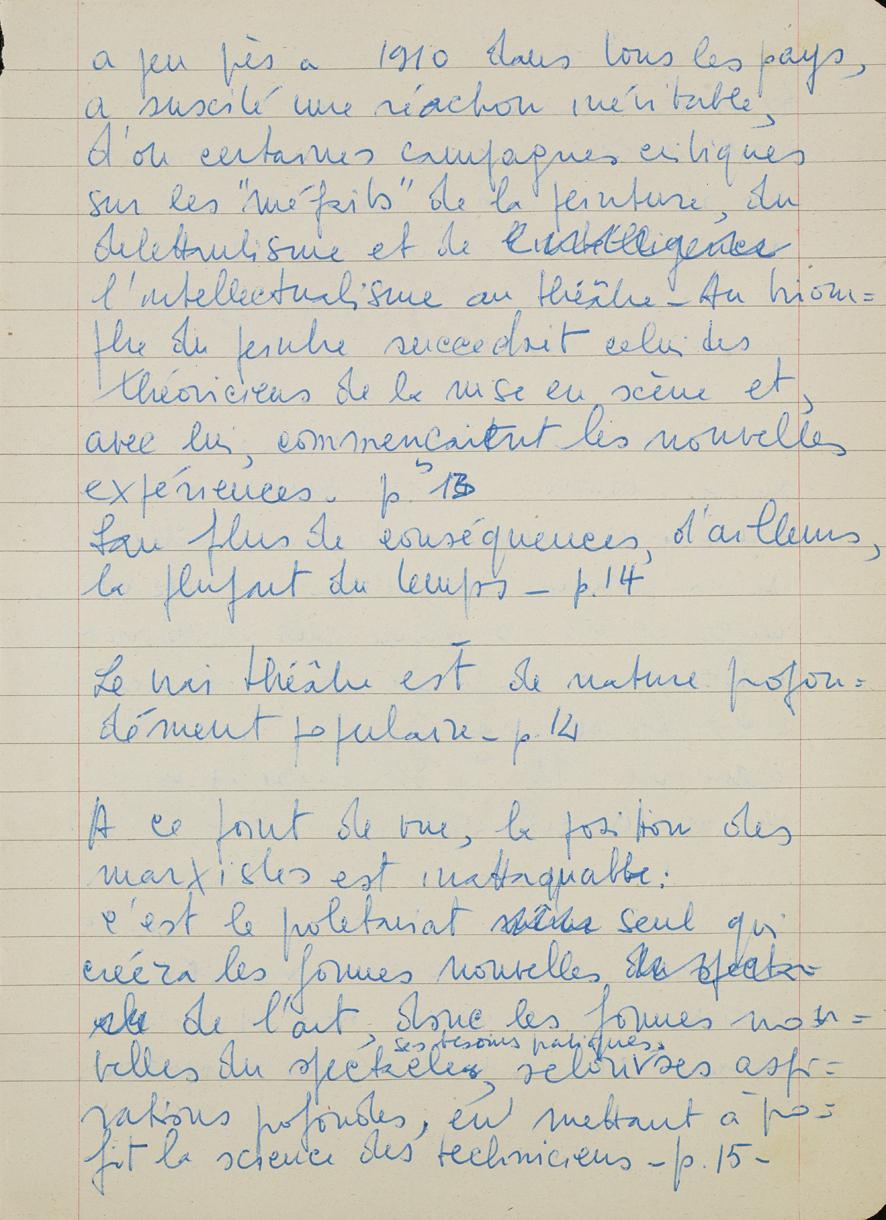 a peu près a 1910 dans tous les pays,
a suscité une réaction inévitable,
d'ou certaines campagnes critiques
sur les "méfaits" de la peinture, du
dilettantisme et de l'intelligence
l'intellectualisme au théâtre - Au triom=
phe du peintre succedait celui des
théoriciens de la mise en scène et,
avec lui, commencaient les nouvelles
expériences. p. 13
San plus de conséquences, d'ailleurs,
la plupart du temps - p. 14
Le vrai théâtre est de nature profon=
dément populaire - p. 14
A ce point de vue, la position des
marxistes est inattaquable:
c'est le proletariat seul qui
créera les formes nouvelles du specta=
cle de l'art, donc les formes nou=
ses besoins pratiques,
velles du spectacle, selon ses aspi=
rations profondes, en mettant à pro=
fit la science des techniciens - p. 15 -